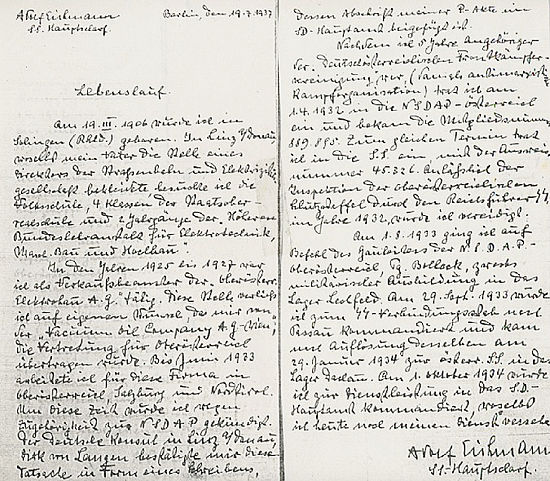 Adolf Eichmann
SS. Hauptscharf.
Berlin, den 19.7.1937
Lebenslauf.
Am 19. III. 1906 wurde ich in
Solingen (Rhld.) geboren. In Linz a/Donau,
woselbst mein Vater die Stelle eines
Direktors der Strassenbahn und Elektrizitäts-
gesellschaft bekleidete besuchte ich die
Volksschule, 4 Klassen der Staatsober-
realschule und 2 Jahrgänge der Höheren
Bundeslehranstalt für Elektrotechnik,
Masch. Bau und Hochbau.
In den Jahren 1925 bis 1927 war
ich als Verkaufsbeamter der oberösterr.
Elektrobau A.G. tätig. Diese Stelle verliess
ich auf eigenen Wunsch da mir von
der "Vacuum Oil Company A.G. Wien,
die Vertretung für Oberösterreich
übertragen wurde. Bis Juni 1933
arbeitete ich für diese Firma in
Oberösterreich, Salzburg und Nordtirol.
Um diese Zeit wurde ich wegen
Zugehörigkeit zur NSDAP gekündigt.
Der deutsche Konsul in Linz a/Donau,
Dirk von Langen bestätigte mir diese
Tatsache in Form eines Schreibens,
dessen Abschrift meiner P-Akte im
SD-Hauptamt beigefügt ist.
Nachdem ich 5 Jahre Angehöriger
der Deutschösterreichischen Frontkämpfer-
vereinigung war, (damals antimarxistische
Kampforganisation) trat ich am
1.4.1932 in die NSDAP-Österreich
ein und bekam die Mitgliedsnummer
889.895. Zum gleichen Termin trat
ich in die SS. ein, mit der Ausweis-
nummer 45.326. Anlässlich der
Inspektion der oberösterreichischen
Schutzstaffel durch den Reichsführer SS,
im Jahre 1932, wurde ich vereidigt.
Am 1.8.1933 ging ich auf
Befehl des Gauleiters der N.S.D.A.P.-
Oberösterreich, Pg. Bolleck, zwecks
militärischer Ausbildung in das
Lager Lechfeld. Am 29. Sept. 1933 wurde
ich zum SS-Verbindungsstab nach
Passau kommandiert und kam
nach Auflösung desselben am
29. Januar 1934 zur österr. SS. in das
Lager Dachau. Am 1. Oktober 1934 wurde
ich zur Dienstleistung in das S.D.-
Hauptamt kommandiert, woselbst
ich heute noch meinen Dienst versehe.
Adolf Eichmann
SS-Hauptscharf.